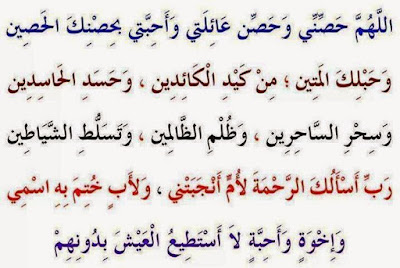 اللَّهُمَّ حَصِّنِّي وَحَصِّن عَائِلَتي وَأَحِبَّتي بحِصْنِكَ الحَصِين
وَحَبْلِكَ المَتِين ؛ مِنْ كَيْدِ الْكَائِدِين ، وَحَسَدِ الحَاسِدِين
وَسِحْرِ السَّاحِرِين ، وَظُلْمِ الظَّالِمِين ، وَتَسَلُّطِ الشَّيَاطِين
رَبِّ أَسْأَلُكَ الرَّحْمَةَ لأُمٍّ أَنْجَبَتْني ، وَلأَبٍ خُتِمَ بِهِ اسْمِي
وَإِخْوَةٍ وَأَحِبَّةٍ لاَ أَسْتَطِيعُ الْعَيْشَ بِدُونِهِمْ